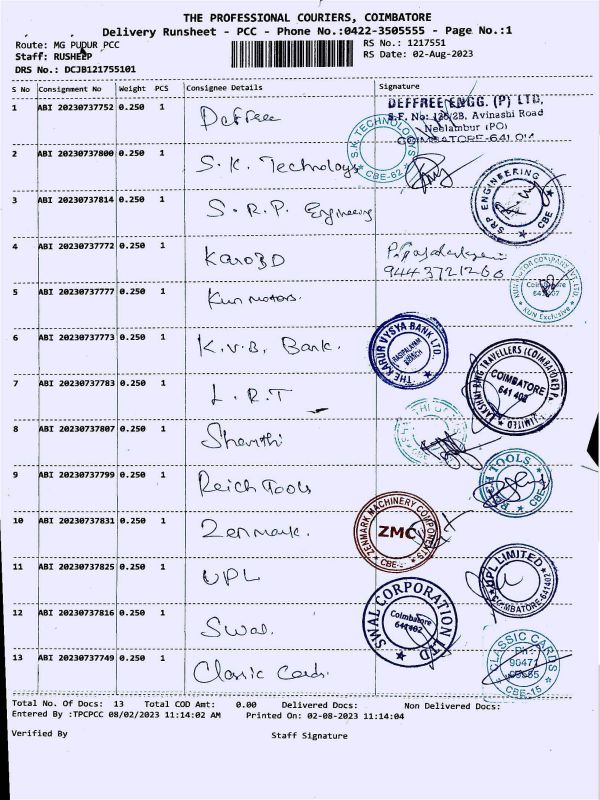 THE PROFESSIONAL COURIERS, COIMBATORE
Delivery Runsheet - PCC - Phone No.:0422-3505555 - Page No.:1
Route: MG PUDUR PCC
RS No.: 1217551
Staff: RUSHEEP
RS Date: 02-Aug-2023
DRS No.: DCJB121755101
S No Consignment No Weight PCS Consignee Details Signature
1 ABI 20230737752 0.250 1 Deffree
DEFFREE ENGG. (P) LTD.
S.F. No: 126/2B, Avinashi Road
Neelambur (PO)
COIMBATORE-641 014
2 ABI 20230737800 0.250 1 S.K. Technology
S.K. TECHNOLOGYS CBE-62
3 ABI 20230737814 0.250 1 S.R.P. Engineering
SRP ENGINEERING CBE
4 ABI 20230737772 0.250 1 KaroBD
9443721260
5 ABI 20230737777 0.250 1 Kun motors
Coimbatore
KUN Exclusive
6 ABI 20230737773 0.250 1 K.V.B. Bank.
THE KARUR VYSYA BANK LTD.
BRANCH
7 ABI 20230737783 0.250 1 L.R.T
LAKSHMI RING TRAVELLERS (COIMBATORE) P. LIMITED
COIMBATORE
641 402
8 ABI 20230737807 0.250 1 Shanthi
9 ABI 20230737799 0.250 1 Reich Tools
TOOLS CBE
10 ABI 20230737831 0.250 1 Zenmark.
ZENMARK MACHINERY COMPONENTS CBE
ZMC
11 ABI 20230737825 0.250 1 UPL
UPL LIMITED
COIMBATORE-641402
12 ABI 20230737816 0.250 1 Swal.
SWAL CORPORATION LTD
Coimbatore
641402
13 ABI 20230737749 0.250 1 Classic Cards.
CLASSIC CARDS
PH:
90471
CBE-15
Total No. Of Docs: 13 Total COD Amt: 0.00 Delivered Docs: Non Delivered Docs:
Entered By :TPCPCC 08/02/2023 11:14:02 AM Printed On: 02-08-2023 11:14:04
Verified By Staff Signature